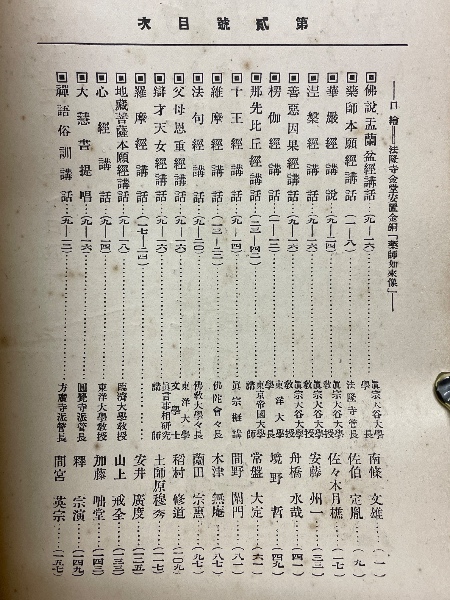 第貳號目次
──口繪──法隆寺金堂安置金銅「藥師如來像」──
▣佛說盂蘭盆經講話…(九―一六)…眞宗大谷大學學長 南條 文雄…(一)
▣藥師本願經講話…(一―八)…法隆寺管長 佐伯 定胤…(九)
▣華嚴經講說…(九―二四)…眞宗大谷大學教授 佐々木月樵…(一七)
▣涅槃經講話…眞宗大谷大學教授 安藤 州一…(三三)
▣善惡因果經講話…眞宗大谷大學教授 舟橋 水哉…(四一)
▣楞伽經講話…東洋大學學長 境野 哲…(四九)
▣那先比丘經講話…東京帝國大學講師 常盤 大定…(六一)
▣十王經講話…眞宗 間野 闡門…(八一)
▣維摩經講話…佛陀會々長 木津 無庵…(八七)
▣法句經講話…佛敎大學々長 薗田 宗惠…(九七)
▣父母恩重經講話…東洋大學文學士 稻村 修道…(一〇九)
▣辯才天女經講話…眞言事相研究講師 土師原穆秀…(一一七)
▣羅摩經講話…(一七―二四)…安井 廣度…(一三五)
▣地藏菩薩本願經講話…(九―一八)…臨濟大學教授 山上 戒全…(一三三)
▣心經講話…(九―一四)…東洋大學教授 加藤 咄堂…(一四三)
▣大慧書提唱…(九―一六)…圓覺寺派管長 釋 宗演…(一四九)
▣禪語俗訓講話…(九―一二)…方廣寺派管長 間宮 英宗…(一五七)